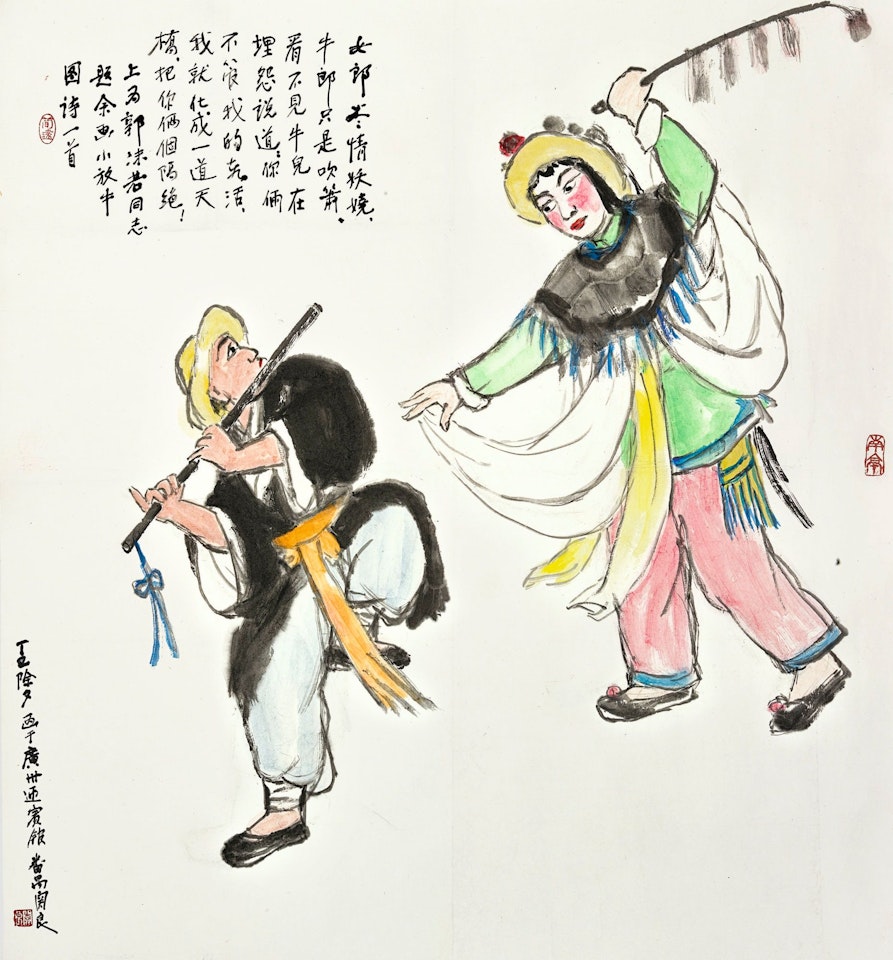 女郎尽情妖嬈，
牛郎只是吹簫。
看不見牛兒在
埋怨説道：你倆
不管我的死活，
我就化成一道天
橋，把你倆個隔絶！
上为郭沫若同志
题余画小放牛
图诗一首
丁巳除夕画于廣州迎賓館 番禺関良